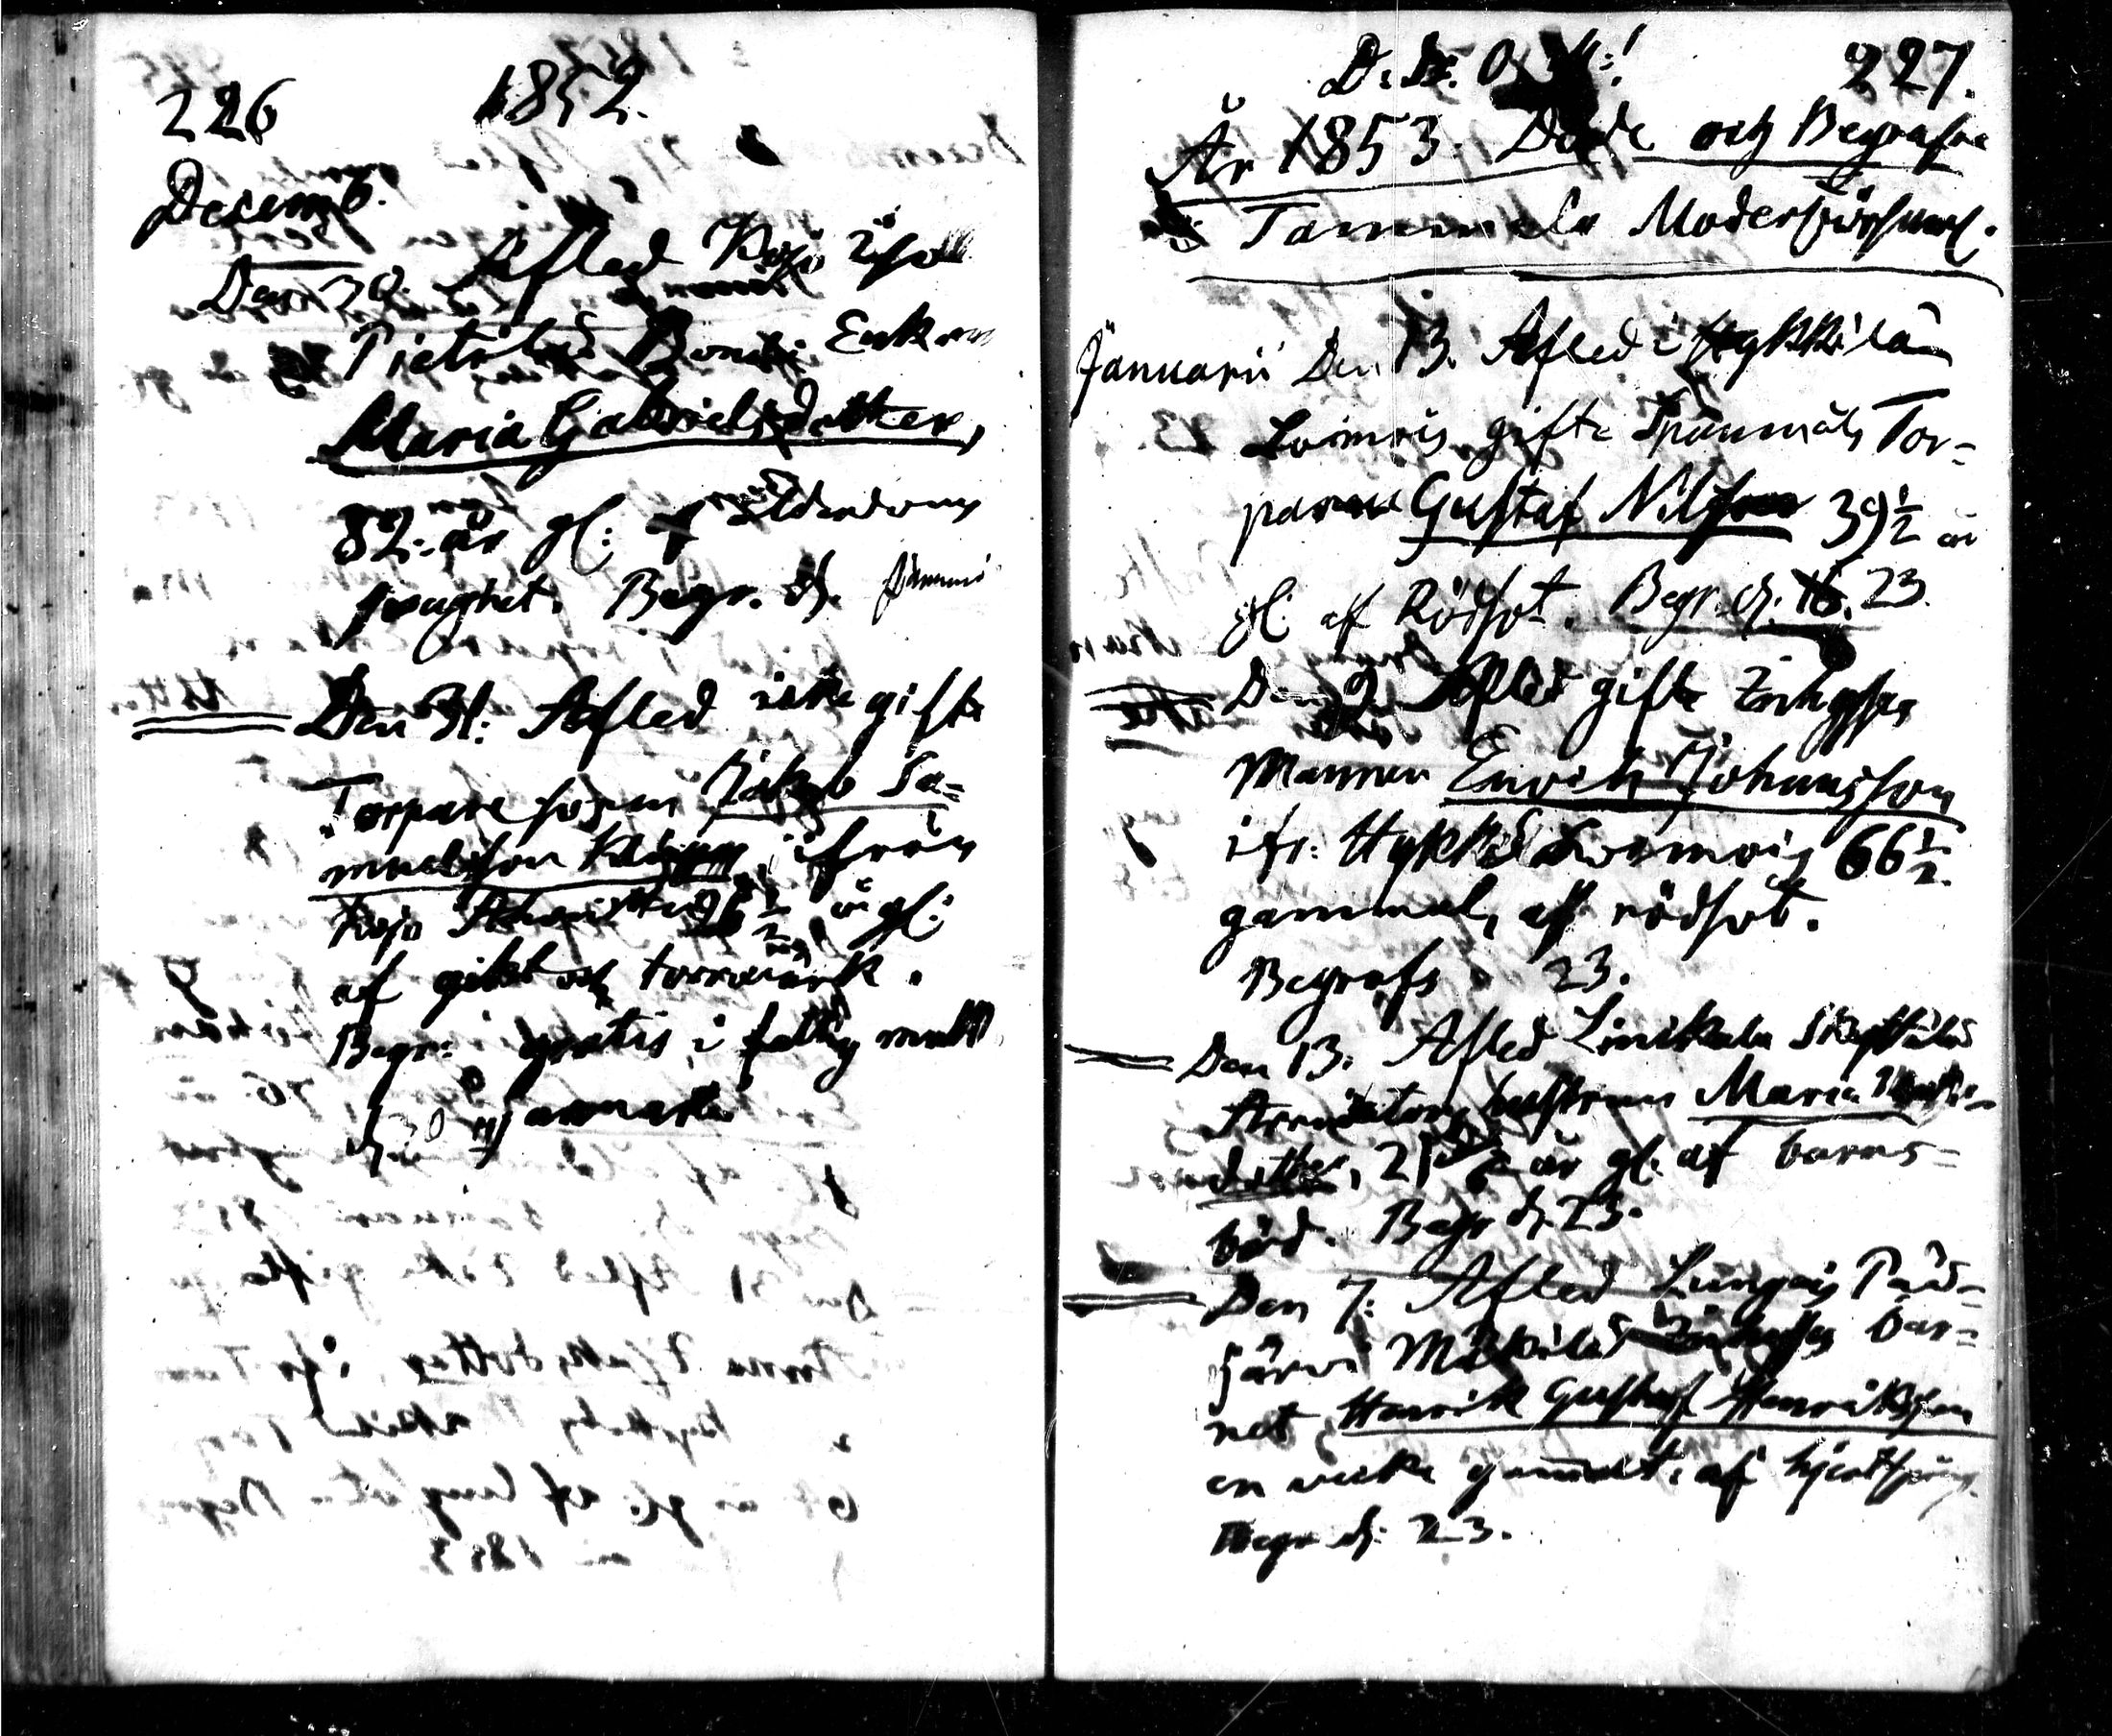 226 1852.
Decemb.
Den 30. Afled Kojo
Pietilä Bonde Enkan
Maria Gabrielsdotter,
82. år gl: af ålderdoms
svaghet. Begr. d. Januari
Den 31: Afled icke gifte
Torpare sonen Jakob Sa=
muelsson ifrån
Kojo 26 1/2 år gl:
af gikt och torrvärk.
Begr: gratis, i fattig mull
d. 30 Januarii
D. D. O. M:! 227.
År 1853. Döde och Begrafne
i Tammela Moderförsaml.
Januarii Den 13. Afled i Hykkilä
Loimois gifte Spånmåls Tor=
paren Gustaf Nilsson 39 1/2 år
gl. af Rödsot. Begr. d: 16. 23.
Den 9. Afled gifte Inhyses
Mannen Enoch Johansson
ifr: Hykkilä Loimois 66 1/2
gammal, af rödsot.
Begrafs 23.
Den 13. Afled Linikkala
hustrun Maria
dotter, 21 år gl: af barns=
börd. Begr d. 23.
Den 7: Afled Lungois Pääj=
järvi Mikkilä Inhyses bar=
net Henrik Gustaf Henriksson
en vecka gammalt, af hjertsprång.
Begr d: 23.